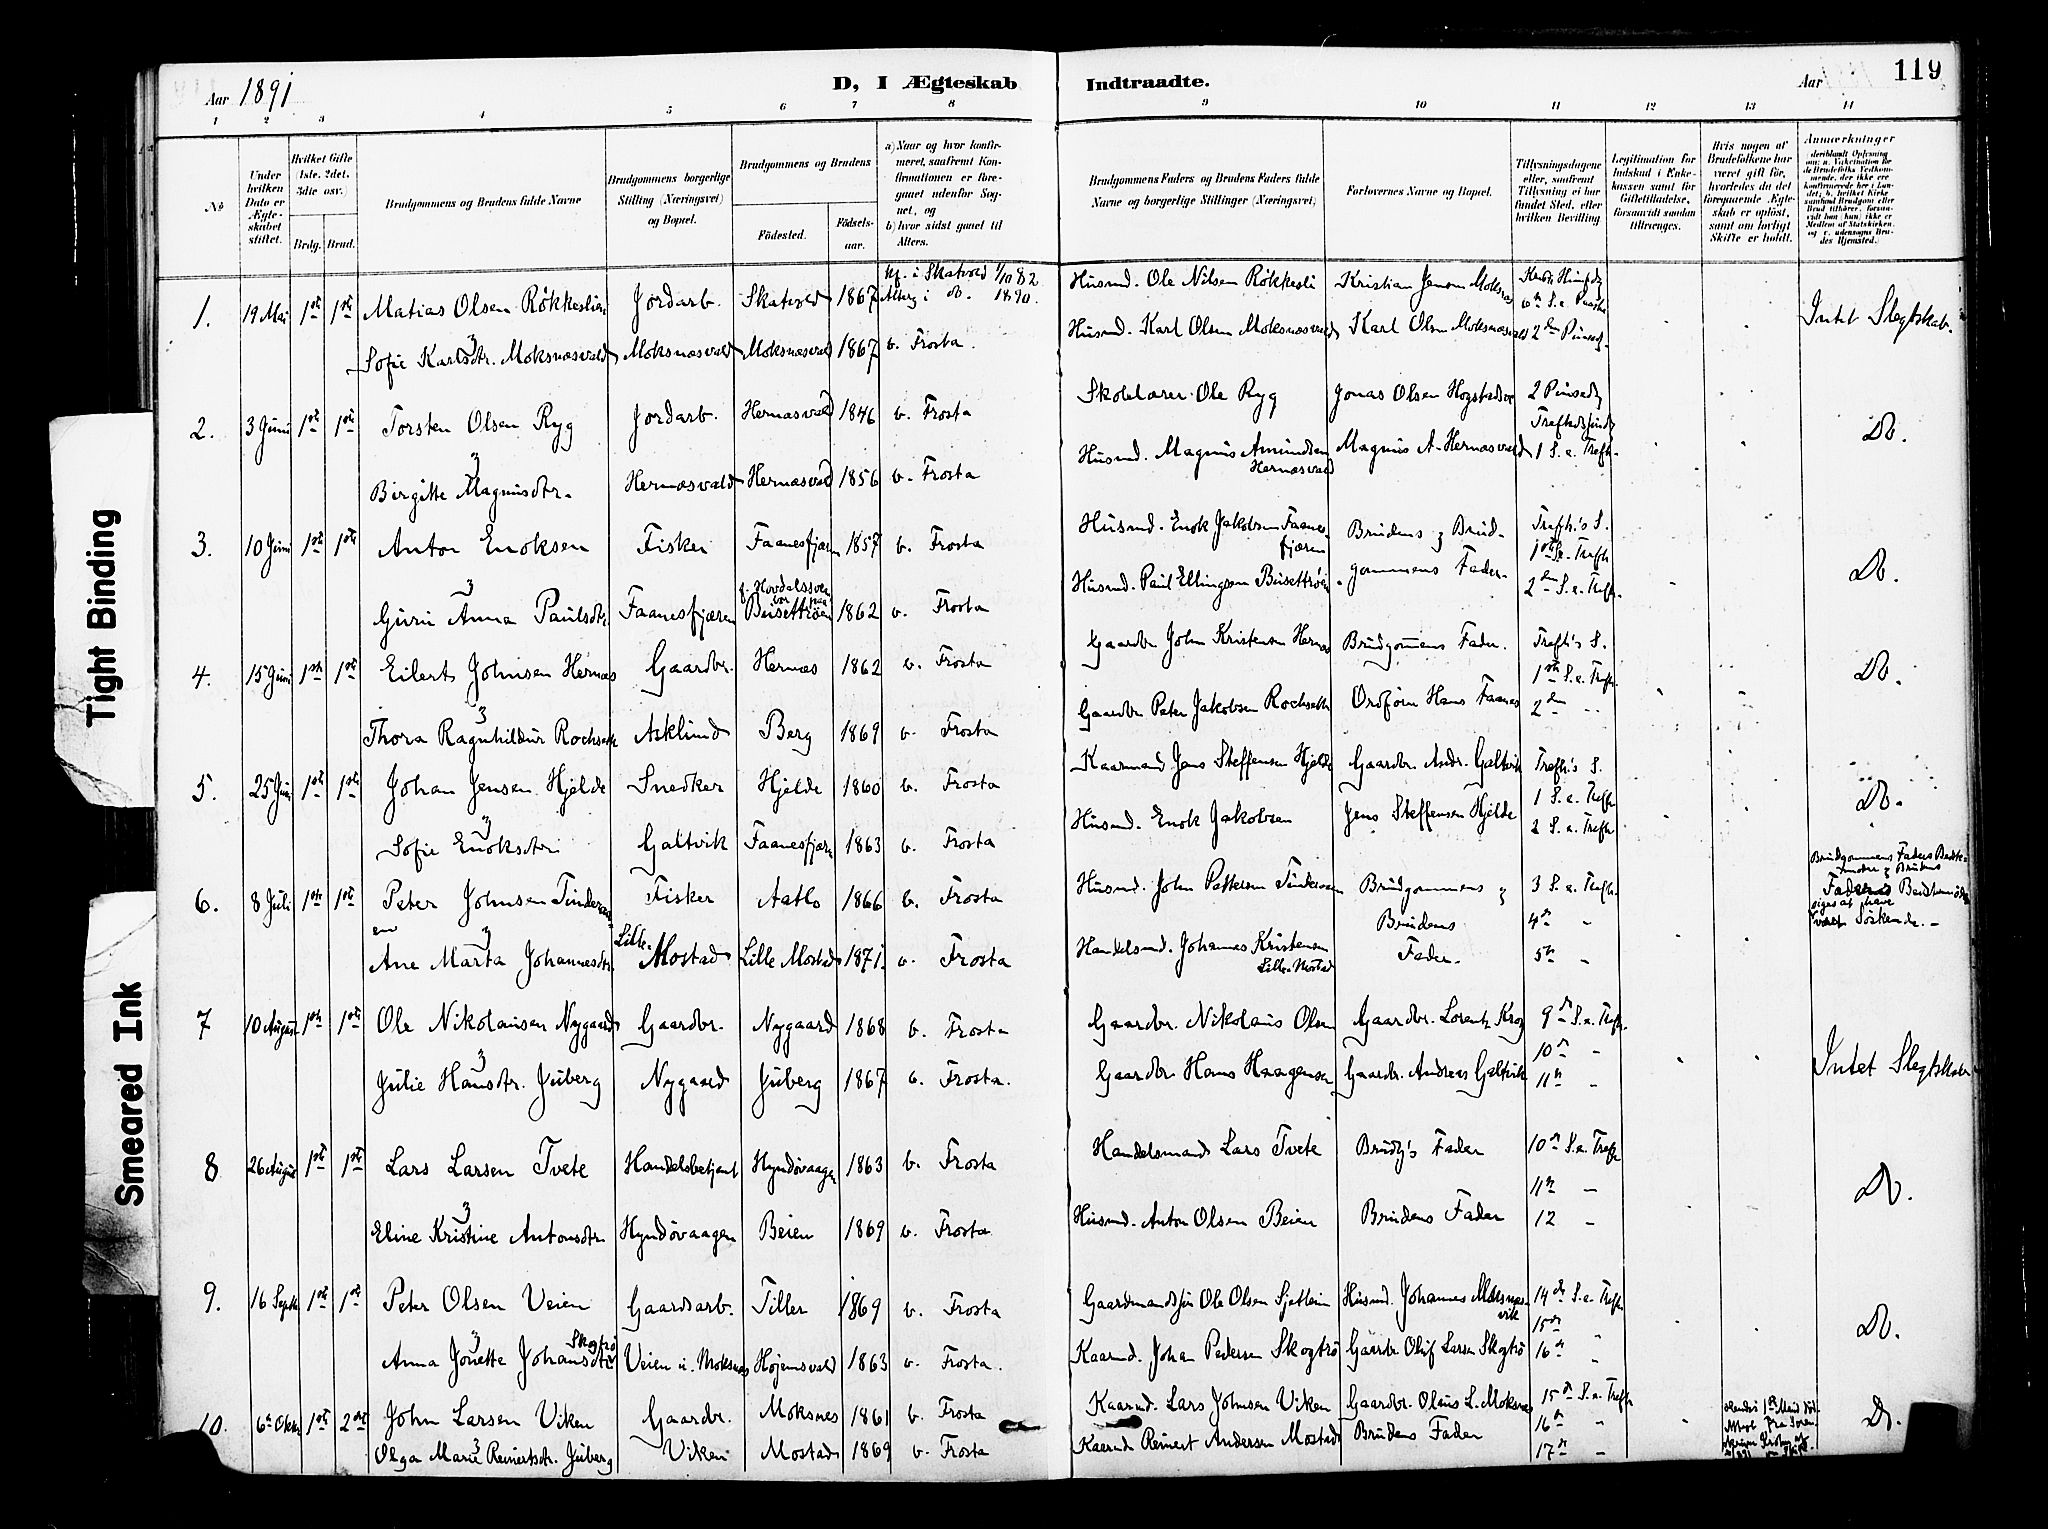 Tight Binding
Smeared Ink
Aar 1891
D, I Ægteskab Indtraadte.
Aar 119
1 2 3 4 5 6 7 8 9 10 11 12 13 14
No
Under hvilken Dato er Ægteskabet stiftet.
Hvilket Gifte (1ste. 2det. 3die osv.)
Brdg. Brud.
Brudgommens og Brudens fulde Navne
Brudgommens borgerlige Stilling (Næringsvei) og Bopæl.
Brudgommens og Brudens
Födested.
Födselsaar.
a) Naar og hvor konfirmeret, saafremt Konfirmationen er foregaaet udenfor Sognet, og
b) hvor sidst gaaet til Alters.
Brudgommens Faders og Brudens Faders fulde Navne og borgerlige Stillinger (Næringsvei)
Forlovernes Navne og Bopæl.
Tillysningsdagene eller, saafremt Tillysning ei har fundet Sted, efter hvilken Bevilling
Legitimation for Indskud i Enkekassen samt for Giftetilladelse, forsaavidt saadan tiltrænges.
Hvis nogen af Brudefolkene har været gift før, hvorledes da det foregaaende Ægteskab er oplöst, samt om lovligt Skifte er holdt.
Anmærkninger
1. 19 Mai 1ste 1ste Matias Olsen Rökkeslien Jordarb. Skatvold 1867 kf. i Skatvold 1/10 82 Alterg. i do. 1890. Husmd. Ole Nilsen Rökkesli Kristian Jensen Moksnes
Sofie Karlsdtr. Moksnæsvald Moksnæsvald Moksnæsvald 1867 b. Frosta Husmd. Karl Olsen Moksnæsvald Karl Olsen Moksnæsvald 2den Pinsed. Intet Slegtskab.
2. 3 Juni 1ste 1ste Torsten Olsen Ryg Jordarb. Hernæsvald 1846 b. Frosta Skolelærer Ole Ryg Jonas Olsen 2 Pinsed.
Birgitte Magnusdtr. Hernæsvald Hernæsvald 1856 b. Frosta Husmd. Magnus Amundsen Hernæsvald Magnus A. Hernæsvald 1 S. e. Trefh. Do.
3. 10 Juni 1ste 1ste Anton Enoksen Fisker Faanesfjæren 1857 b. Frosta Husmd. Enok Jakobsen Faanesfjæren Brudens og Brudgommens Fader. Trefh.'s S. 1ste S. e. Trefh.
Guru Anna Paulsdtr. Faanesfjæren Busettröen 1862 b. Frosta Husmd. Paul Ellingsen Busettröen 2den S. e. Trefh. Do.
4. 15 Juni 1ste 1ste Eilert Johnsen Hernæs Gaardbr. Hernæs 1862 b. Frosta Gaardbr John Kristensen Hernæs Brudgommens Fader. Trefh.'s S. 1ste S. e. Trefh.
Thora Ragnhildur Rochseth Asklund Berg 1869 b. Frosta Gaardbr Peter Jakobsen Rochseth Ordförer Hans Faanes 2den Do.
5. 25 Juni 1ste 1ste Johan Jensen Hjelde Snedker Hjelde 1860 b. Frosta Kaarmand Jens Steffensen Hjelde Gaardbr. Andr. Galtvik Trefh's S. 1 S. e. Trefh
Sofie Enoksdtr Galtvik Faanesfjæren 1863 b. Frosta Husmd. Enok Jakobsen Jens Steffensen Hjelde 2 S. e. Trefh Do.
6. 8 Juli 1ste 1ste Peter Johnsen Tinderaasen Fisker Aatlo 1866 b. Frosta Husmd. John Pettersen Brudgommens og Brudens Fader. 3 S. e. Trefh. 4de
Ane Marta Johannesdtr. Lille-Mostad Lille Mostad 1871. b. Frosta Handelsmd. Johannes Kristensen Lille-Mostad 5te
Brudgommens Faders Bedstemoder og Brudens Faders Bedstemoder siges at have været Söskende.
7 10 August 1ste 1ste Ole Nikolausen Nygaard Gaardbr. Nygaard 1868 b. Frosta Gaardbr. Nikolaus Olsen Gaardbr. Lorents Krog 9de S. e. Trefh. 10de
Julie Hansdtr. Juberg Nygaard Juberg 1867 b. Frosta. Gaardbr Hans Haagensen Gaardbr. Andreas Galtvik 11te Intet Slegtskab
8 26 August 1ste 1ste Lars Larsen Tvete Handelsbetjent Hyndövaagen 1863 b. Frosta Handelsmand Lars Tvete Brudg's Fader 10de S. e. Trefh 11te
Eline Kristine Antonsdtr. Hyndövaagen Beien 1869 b. Frosta Husmd. Anton Olsen Beien Brudens Fader 12 Do.
9. 16 Septb 1ste 1ste Peter Olsen Veien Gaardsarb. Tiller 1869 b. Frosta Gaardmandssön Ole Olsen Sjetlein Husmd. Johannes Moksnesvik 14de S. e. Trefh 15de
Anna Jonette Johansdtr Skogtrö Veien u. Moksnes Höjemsvald 1863 b. Frosta. Kaarmd. Johan Pedersen Skogtrö Gaardbr Oluf Larsen Skogtrö 16de Do.
10. 6te Oktb 1ste 2det John Larsen Viken Gaardbr. Moksnes 1861 b. Frosta Kaarmd. Lars Johnsen Viken Gaardbr. Olaus L. Moksnes 15de S. e. Trefh 16de
Olga Marie Reinertsdtr. Juberg Viken Mostad 1869 b. Frosta Kaarmd Reinert Andersen Mostad Brudens Fader 17de Do.